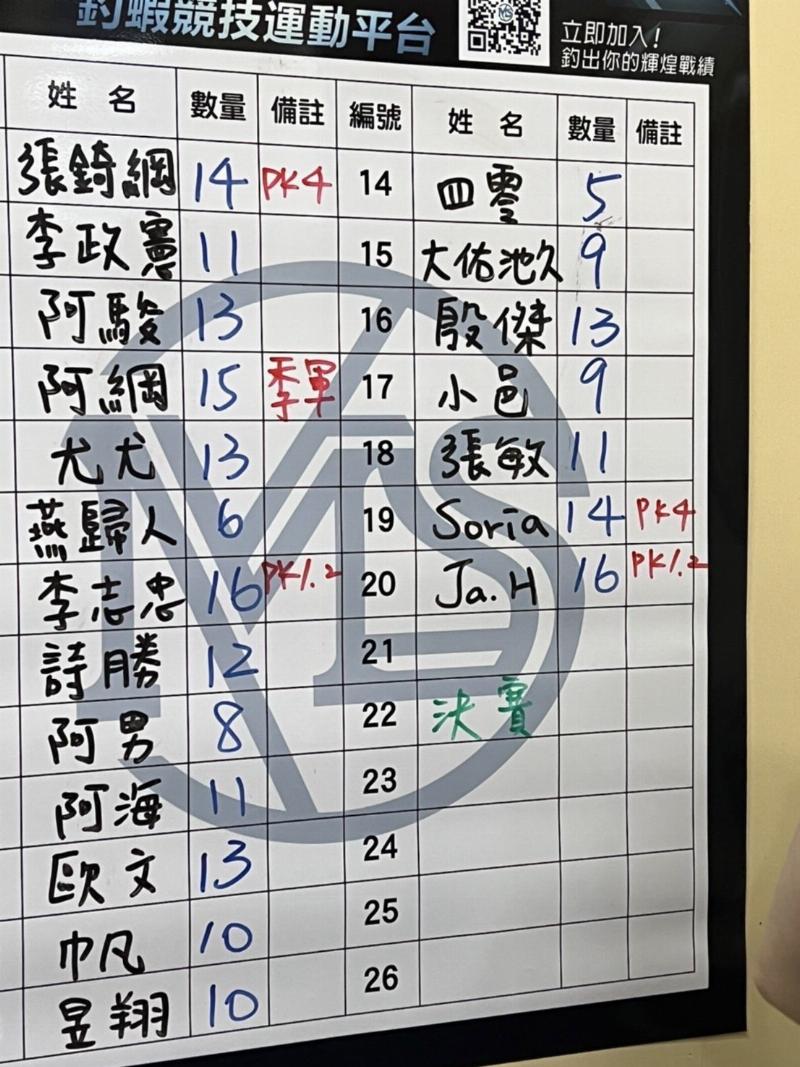 釣蝦競技運動平台
立即加入！
釣出你的輝煌戰績
姓名 數量 備註 編號 姓名 數量 備註
張錡綱 14 PK4 14 四零 5
李政憲 11 15 大佑池久 9
阿駿 13 16 殷傑 13
阿綱 15 季軍 17 小邑 9
尤尤 13 18 張敏 11
燕歸人 6 19 Soria 14 PK4
李志忠 16 PK1.2 20 Ja.H 16 PK1.2
詩勝 12 21
阿男 8 22 決賽
阿海 11 23
歐文 13 24
巾凡 10 25
昱翔 10 26